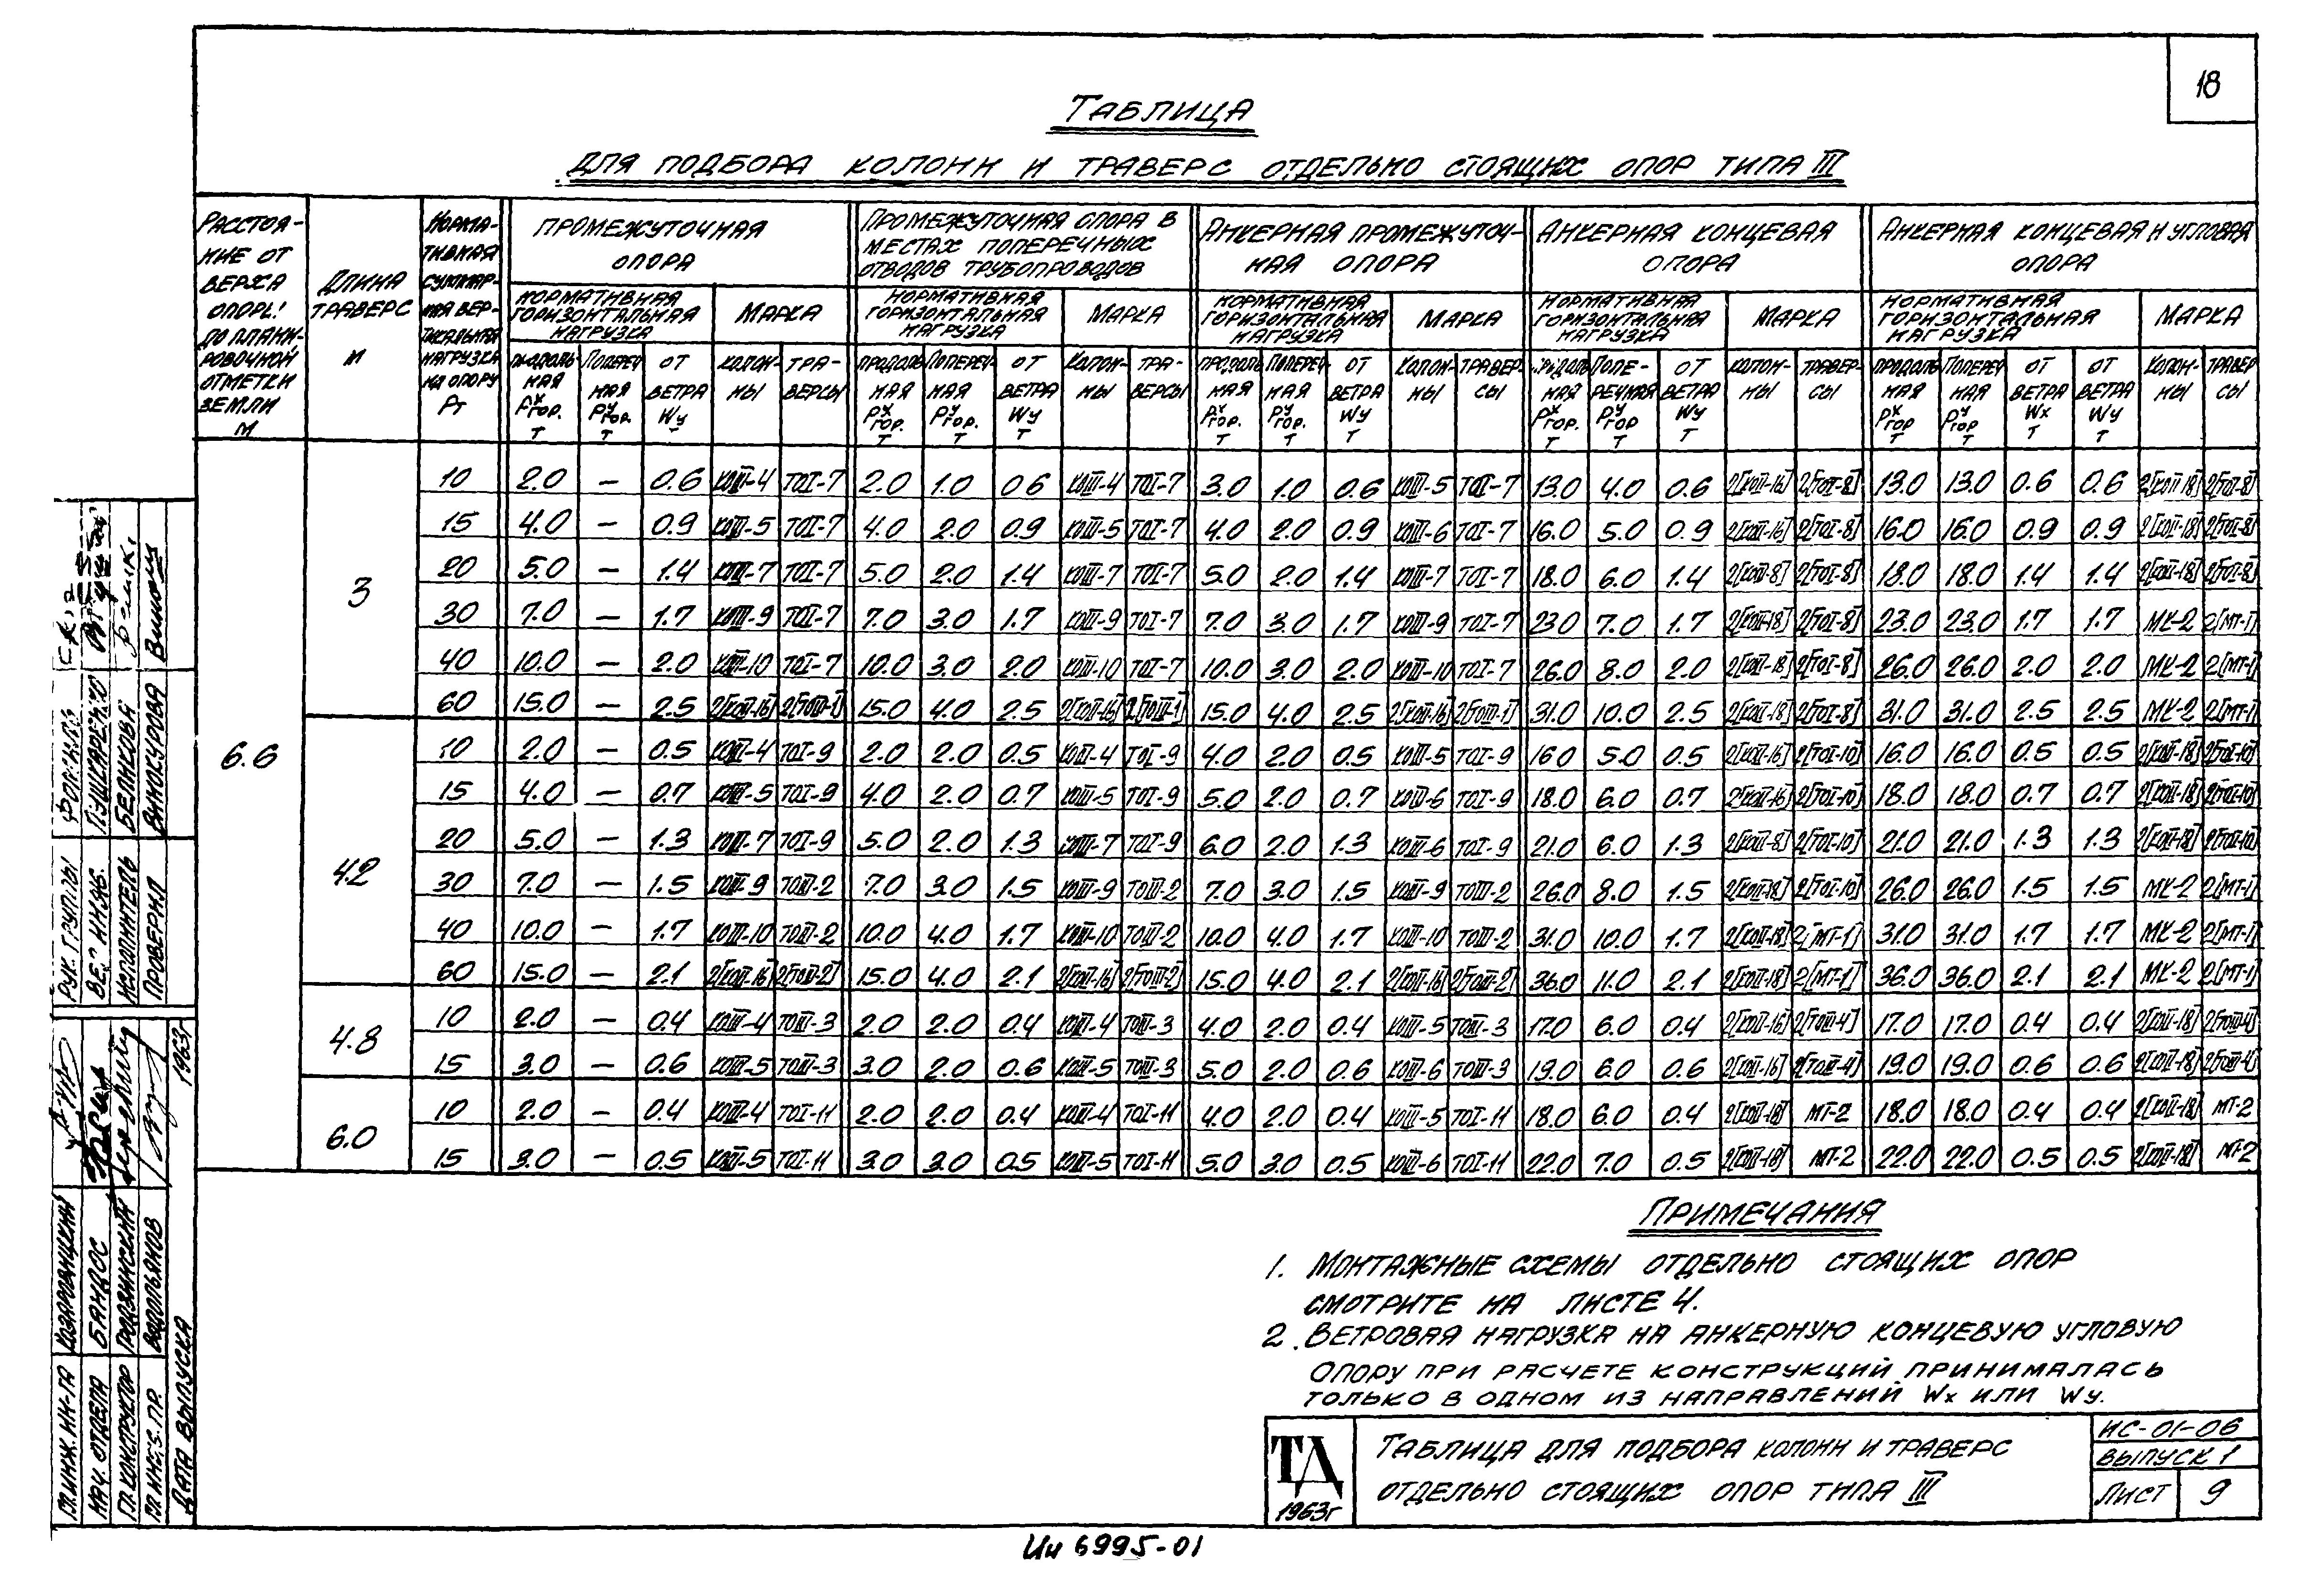 18
ТАБЛИЦА
ДЛЯ ПОДБОРА КОЛОНН И ТРАВЕРС ОТДЕЛЬНО СТОЯЩИХ ОПОР ТИПА III
РАССТОЯ-
НИЕ ОТ
ВЕРХА
ОПОРЫ
ДО ПЛАНИ-
РОВОЧНОЙ
ОТМЕТКИ
ЗЕМЛИ
М
ДЛИНА
ТРАВЕРС
М
НОРМА-
ТИВНАЯ
СУММАР-
НАЯ ВЕР-
ТИКАЛЬНАЯ
НАГРУЗКА
НА ОПОРУ
Рт
ПРОМЕЖУТОЧНАЯ
ОПОРА
ПРОМЕЖУТОЧНАЯ ОПОРА В
МЕСТАХ ПОПЕРЕЧНЫХ
ОТВОДОВ ТРУБОПРОВОДОВ
АНКЕРНАЯ ПРОМЕЖУТОЧ-
НАЯ ОПОРА
АНКЕРНАЯ КОНЦЕВАЯ
ОПОРА
АНКЕРНАЯ КОНЦЕВАЯ И УГЛОВАЯ
ОПОРА
НОРМАТИВНАЯ ГОРИЗОНТАЛЬНАЯ НАГРУЗКА МАРКА НОРМАТИВНАЯ ГОРИЗОНТАЛЬНАЯ НАГРУЗКА МАРКА НОРМАТИВНАЯ ГОРИЗОНТАЛЬНАЯ НАГРУЗКА МАРКА НОРМАТИВНАЯ ГОРИЗОНТАЛЬНАЯ НАГРУЗКА МАРКА НОРМАТИВНАЯ ГОРИЗОНТАЛЬНАЯ НАГРУЗКА МАРКА
ПРОДОЛЬНАЯ PXГОР. Т ПОПЕРЕЧНАЯ PYГОР. Т ОТ ВЕТРА WY Т КОЛОН-НЫ ТРА-ВЕРСЫ ПРОДОЛЬНАЯ PXГОР. Т ПОПЕРЕЧНАЯ PYГОР. Т ОТ ВЕТРА WY Т КОЛОН-НЫ ТРА-ВЕРСЫ ПРОДОЛЬНАЯ PXГОР. Т ПОПЕРЕЧНАЯ PYГОР. Т ОТ ВЕТРА WY Т КОЛОН-НЫ ТРАВЕР-СЫ ПРОДОЛЬНАЯ PXГОР. Т ПОПЕ-РЕЧНАЯ PYГОР Т ОТ ВЕТРА WY Т КОЛОН-НЫ ТРАВЕР-СЫ ПРОДОЛЬНАЯ PXГОР Т ПОПЕРЕЧНАЯ PYГОР Т ОТ ВЕТРА WX Т ОТ ВЕТРА WY Т КОЛОН-НЫ ТРАВЕРСЫ
6.6
3
10 2.0 — 0.6 КОIII-4 ТОI-7 2.0 1.0 0.6 КОIII-4 ТОI-7 3.0 1.0 0.6 КОIII-5 ТОI-7 13.0 4.0 0.6 2[КОII-16] 2[ТОI-8] 13.0 13.0 0.6 0.6 2[КОII-18] 2[ТОI-8]
15 4.0 — 0.9 КОIII-5 ТОI-7 4.0 2.0 0.9 КОIII-5 ТОI-7 4.0 2.0 0.9 КОIII-6 ТОI-7 16.0 5.0 0.9 2[КОII-16] 2[ТОI-8] 16.0 16.0 0.9 0.9 2[КОII-18] 2[ТОI-8]
20 5.0 — 1.4 КОIII-7 ТОI-7 5.0 2.0 1.4 КОIII-7 ТОI-7 5.0 2.0 1.4 КОIII-7 ТОI-7 18.0 6.0 1.4 2[КОII-8] 2[ТОI-8] 18.0 18.0 1.4 1.4 2[КОII-18] 2[ТОI-8]
30 7.0 — 1.7 КОIII-9 ТОI-7 7.0 3.0 1.7 КОIII-9 ТОI-7 7.0 3.0 1.7 КОIII-9 ТОI-7 23.0 7.0 1.7 2[КОII-18] 2[ТОI-8] 23.0 23.0 1.7 1.7 МК-2 2[МТ-1]
40 10.0 — 2.0 КОIII-10 ТОI-7 10.0 3.0 2.0 КОIII-10 ТОI-7 10.0 3.0 2.0 КОIII-10 ТОI-7 26.0 8.0 2.0 2[КОII-18] 2[ТОI-8] 26.0 26.0 2.0 2.0 МК-2 2[МТ-1]
60 15.0 — 2.5 2[КОII-16] 2[ТОIII-1] 15.0 4.0 2.5 2[КОII-16] 2[ТОIII-1] 15.0 4.0 2.5 2[КОII-16] 2[ТОIII-1] 31.0 10.0 2.5 2[КОII-18] 2[ТОI-8] 31.0 31.0 2.5 2.5 МК-2 2[МТ-1]
4.2
10 2.0 — 0.5 КОIII-4 ТОI-9 2.0 2.0 0.5 КОIII-4 ТОI-9 4.0 2.0 0.5 КОIII-5 ТОI-9 16.0 5.0 0.5 2[КОII-16] 2[ТОI-10] 16.0 16.0 0.5 0.5 2[КОII-18] 2[ТОI-10]
15 4.0 — 0.7 КОIII-5 ТОI-9 4.0 2.0 0.7 КОIII-5 ТОI-9 5.0 2.0 0.7 КОIII-6 ТОI-9 18.0 6.0 0.7 2[КОII-16] 2[ТОI-10] 18.0 18.0 0.7 0.7 2[КОII-18] 2[ТОI-10]
20 5.0 — 1.3 КОIII-7 ТОI-9 5.0 2.0 1.3 КОIII-7 ТОI-9 6.0 2.0 1.3 КОIII-6 ТОI-9 21.0 6.0 1.3 2[КОII-8] 2[ТОI-10] 21.0 21.0 1.3 1.3 2[КОII-18] 2[ТОI-10]
30 7.0 — 1.5 КОIII-9 ТОIII-2 7.0 3.0 1.5 КОIII-9 ТОIII-2 7.0 3.0 1.5 КОIII-9 ТОIII-2 26.0 8.0 1.5 2[КОII-18] 2[ТОI-10] 26.0 26.0 1.5 1.5 МК-2 2[МТ-1]
40 10.0 — 1.7 КОIII-10 ТОIII-2 10.0 4.0 1.7 КОIII-10 ТОIII-2 10.0 4.0 1.7 КОIII-10 ТОIII-2 31.0 10.0 1.7 2[КОII-18] 2[МТ-1] 31.0 31.0 1.7 1.7 МК-2 2[МТ-1]
60 15.0 — 2.1 2[КОII-16] 2[ТОIII-2] 15.0 4.0 2.1 2[КОII-16] 2[ТОIII-2] 15.0 4.0 2.1 2[КОII-16] 2[ТОIII-2] 36.0 11.0 2.1 2[КОII-18] 2[МТ-1] 36.0 36.0 2.1 2.1 МК-2 2[МТ-1]
4.8
10 2.0 — 0.4 КОIII-4 ТОIII-3 2.0 2.0 0.4 КОIII-4 ТОIII-3 4.0 2.0 0.4 КОIII-5 ТОIII-3 17.0 6.0 0.4 2[КОII-16] 2[ТОIII-4] 17.0 17.0 0.4 0.4 2[КОII-18] 2[ТОIII-4]
15 3.0 — 0.6 КОIII-5 ТОIII-3 3.0 2.0 0.6 КОIII-5 ТОIII-3 5.0 2.0 0.6 КОIII-6 ТОIII-3 19.0 6.0 0.6 2[КОII-16] 2[ТОIII-4] 19.0 19.0 0.6 0.6 2[КОII-18] 2[ТОIII-4]
6.0
10 2.0 — 0.4 КОIII-4 ТОI-11 2.0 2.0 0.4 КОIII-4 ТОI-11 4.0 2.0 0.4 КОIII-5 ТОI-11 18.0 6.0 0.4 2[КОII-18] МТ-2 18.0 18.0 0.4 0.4 2[КОII-18] МТ-2
15 3.0 — 0.5 КОIII-5 ТОI-11 3.0 3.0 0.5 КОIII-5 ТОI-11 5.0 3.0 0.5 КОIII-6 ТОI-11 22.0 7.0 0.5 2[КОII-18] МТ-2 22.0 22.0 0.5 0.5 2[КОII-18] МТ-2
ПРИМЕЧАНИЯ
1. МОНТАЖНЫЕ СХЕМЫ ОТДЕЛЬНО СТОЯЩИХ ОПОР
СМОТРИТЕ НА ЛИСТЕ 4.
2. ВЕТРОВАЯ НАГРУЗКА НА АНКЕРНУЮ КОНЦЕВУЮ УГЛОВУЮ
ОПОРУ ПРИ РАСЧЕТЕ КОНСТРУКЦИЙ ПРИНИМАЛАСЬ
ТОЛЬКО В ОДНОМ ИЗ НАПРАВЛЕНИЙ Wх ИЛИ Wу.
ТД
1963г
ТАБЛИЦА ДЛЯ ПОДБОРА КОЛОНН И ТРАВЕРС
ОТДЕЛЬНО СТОЯЩИХ ОПОР ТИПА III
ИС-01-06
ВЫПУСК 1
ЛИСТ 9
РУК. ГРУППЫ
ВЕД. ИНЖ. ПУШКАРЕНКО
ИСПОЛНИТЕЛЬ БЕЛИКОВА
ПРОВЕРИЛ ВИНОКУРОВА
ГЛ. ИНЖ. ИН-ТА
НАЧ. ОТДЕЛА БАНДОС
ГЛ. КОНСТРУКТОР ГРОДЗИНСКИЙ
ГЛ. ИНЖ. ПР. ВОДОЛЬЯНОВ
ДАТА ВЫПУСКА 1963г
Ин 6995-01